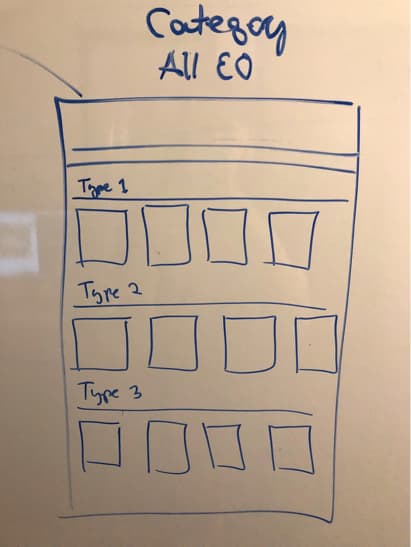 Category
All EO
Type 1
Type 2
Type 3